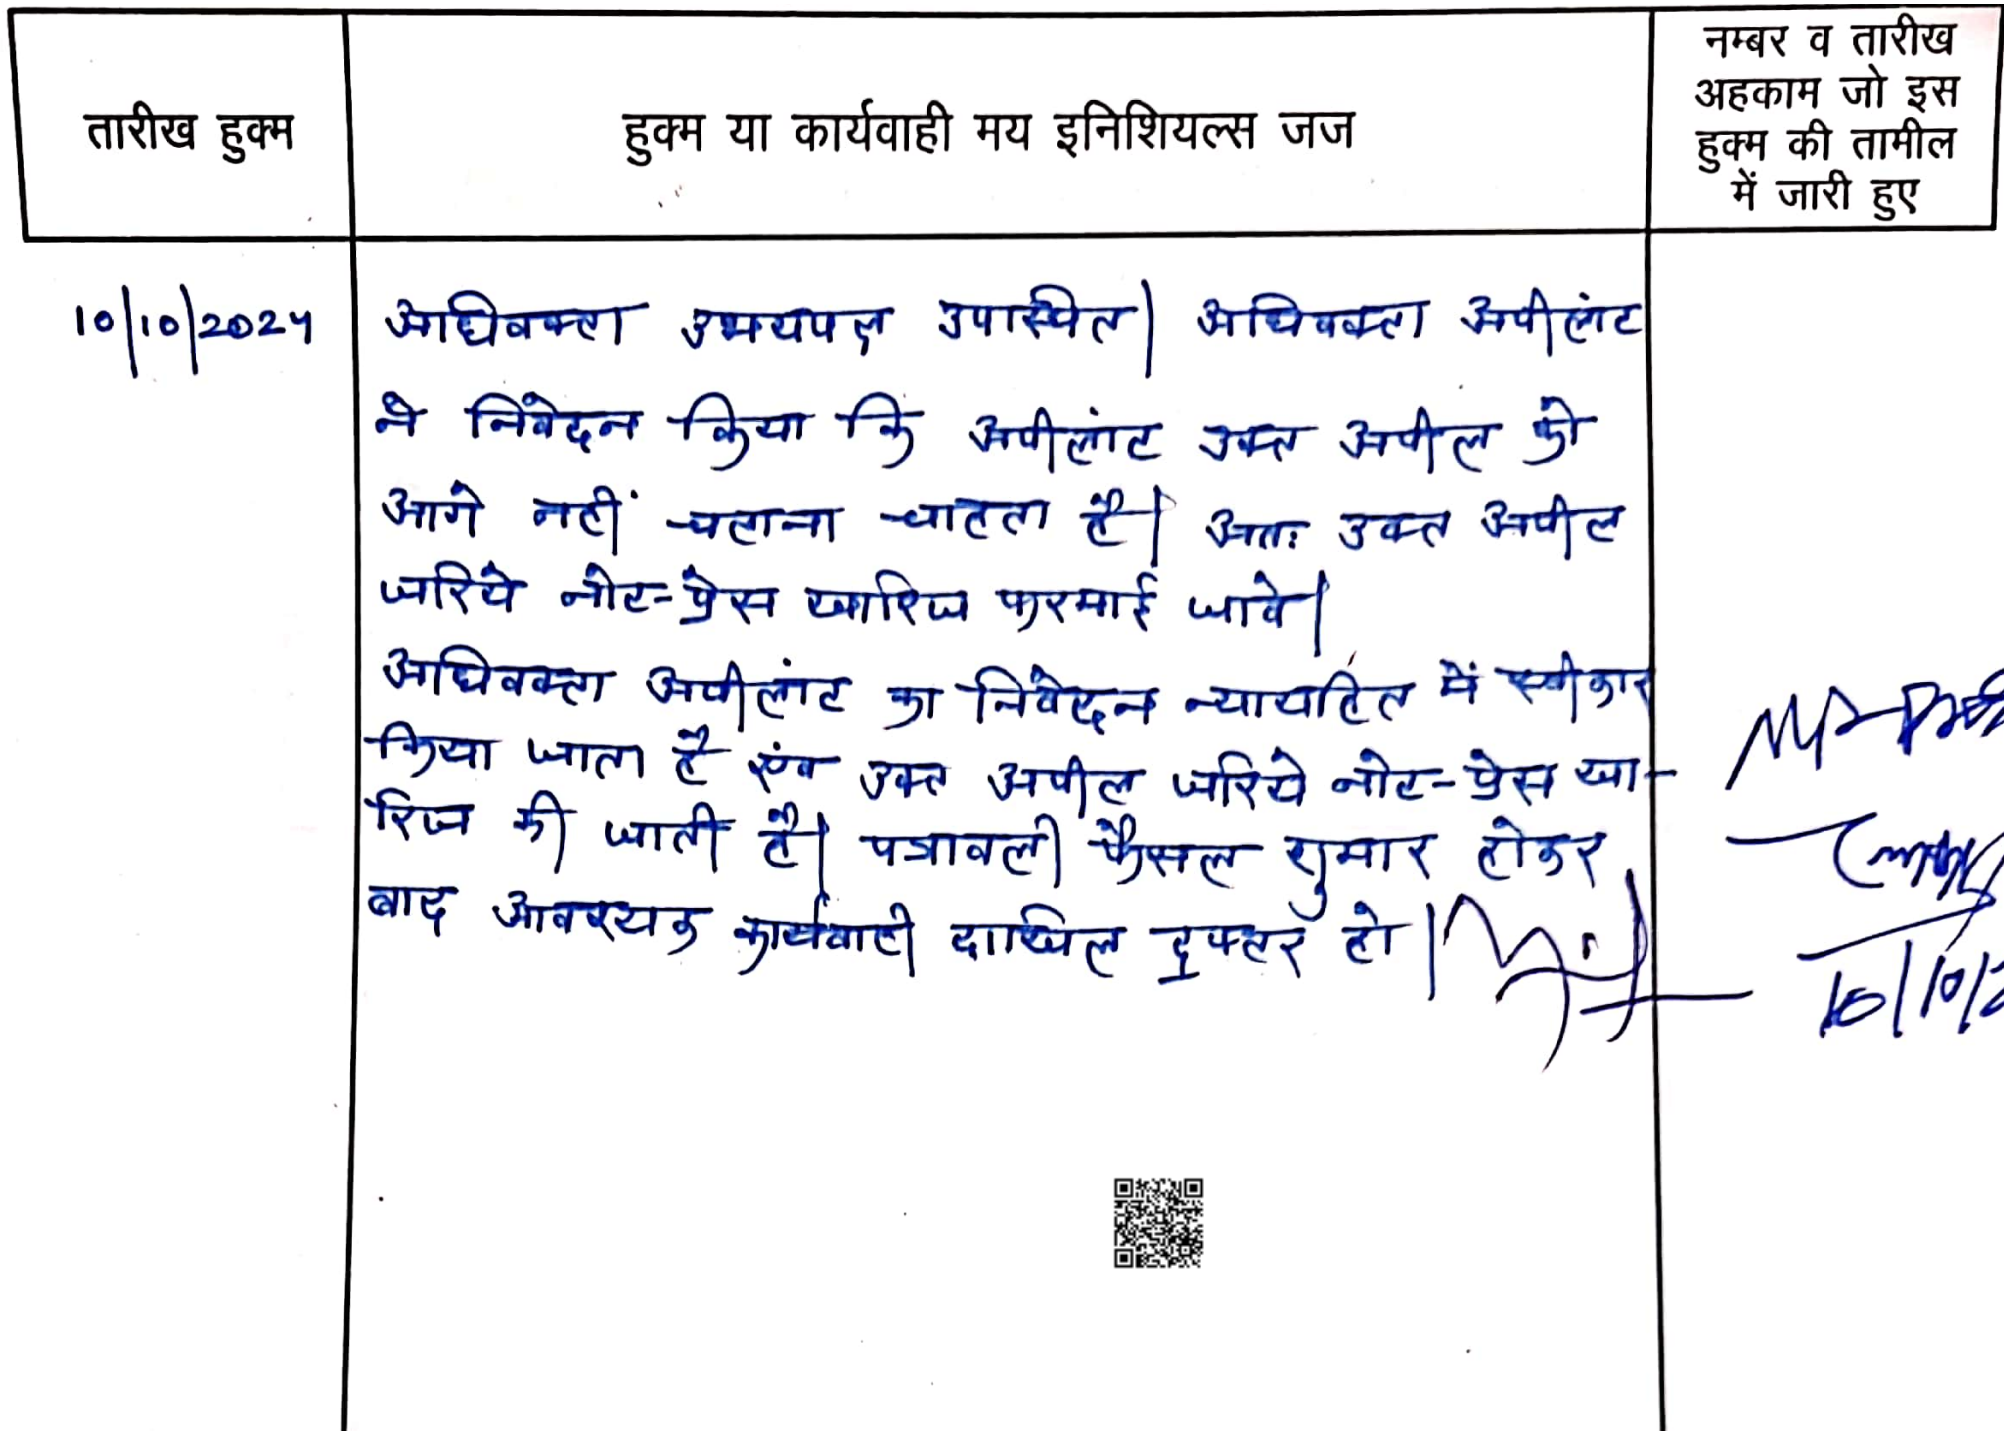 तारीख हुक्म
हुक्म या कार्यवाही मय इनिशियल्स जज
नम्बर व तारीख
अहकाम जो इस
हुक्म की तामील
में जारी हुए
10/10/2024
अधिवक्ता उभयपक्ष उपस्थित| अधिवक्ता अपीलांट
ने निवेदन किया कि अपीलांट उक्त अपील को
आगे नहीं चलाना चाहता है| अतः उक्त अपील
जरिये नोट-प्रेस खारिज फरमाई जावे|
अधिवक्ता अपीलांट का निवेदन न्यायहित में स्वीकार
किया जाता है एंव उक्त अपील जरिये नोट-प्रेस खा-
रिज की जाती है| पत्रावली फैसल शुमार होकर
बाद आवश्यक कार्यवाही दाखिल दफ्तर हो|
10/10/2